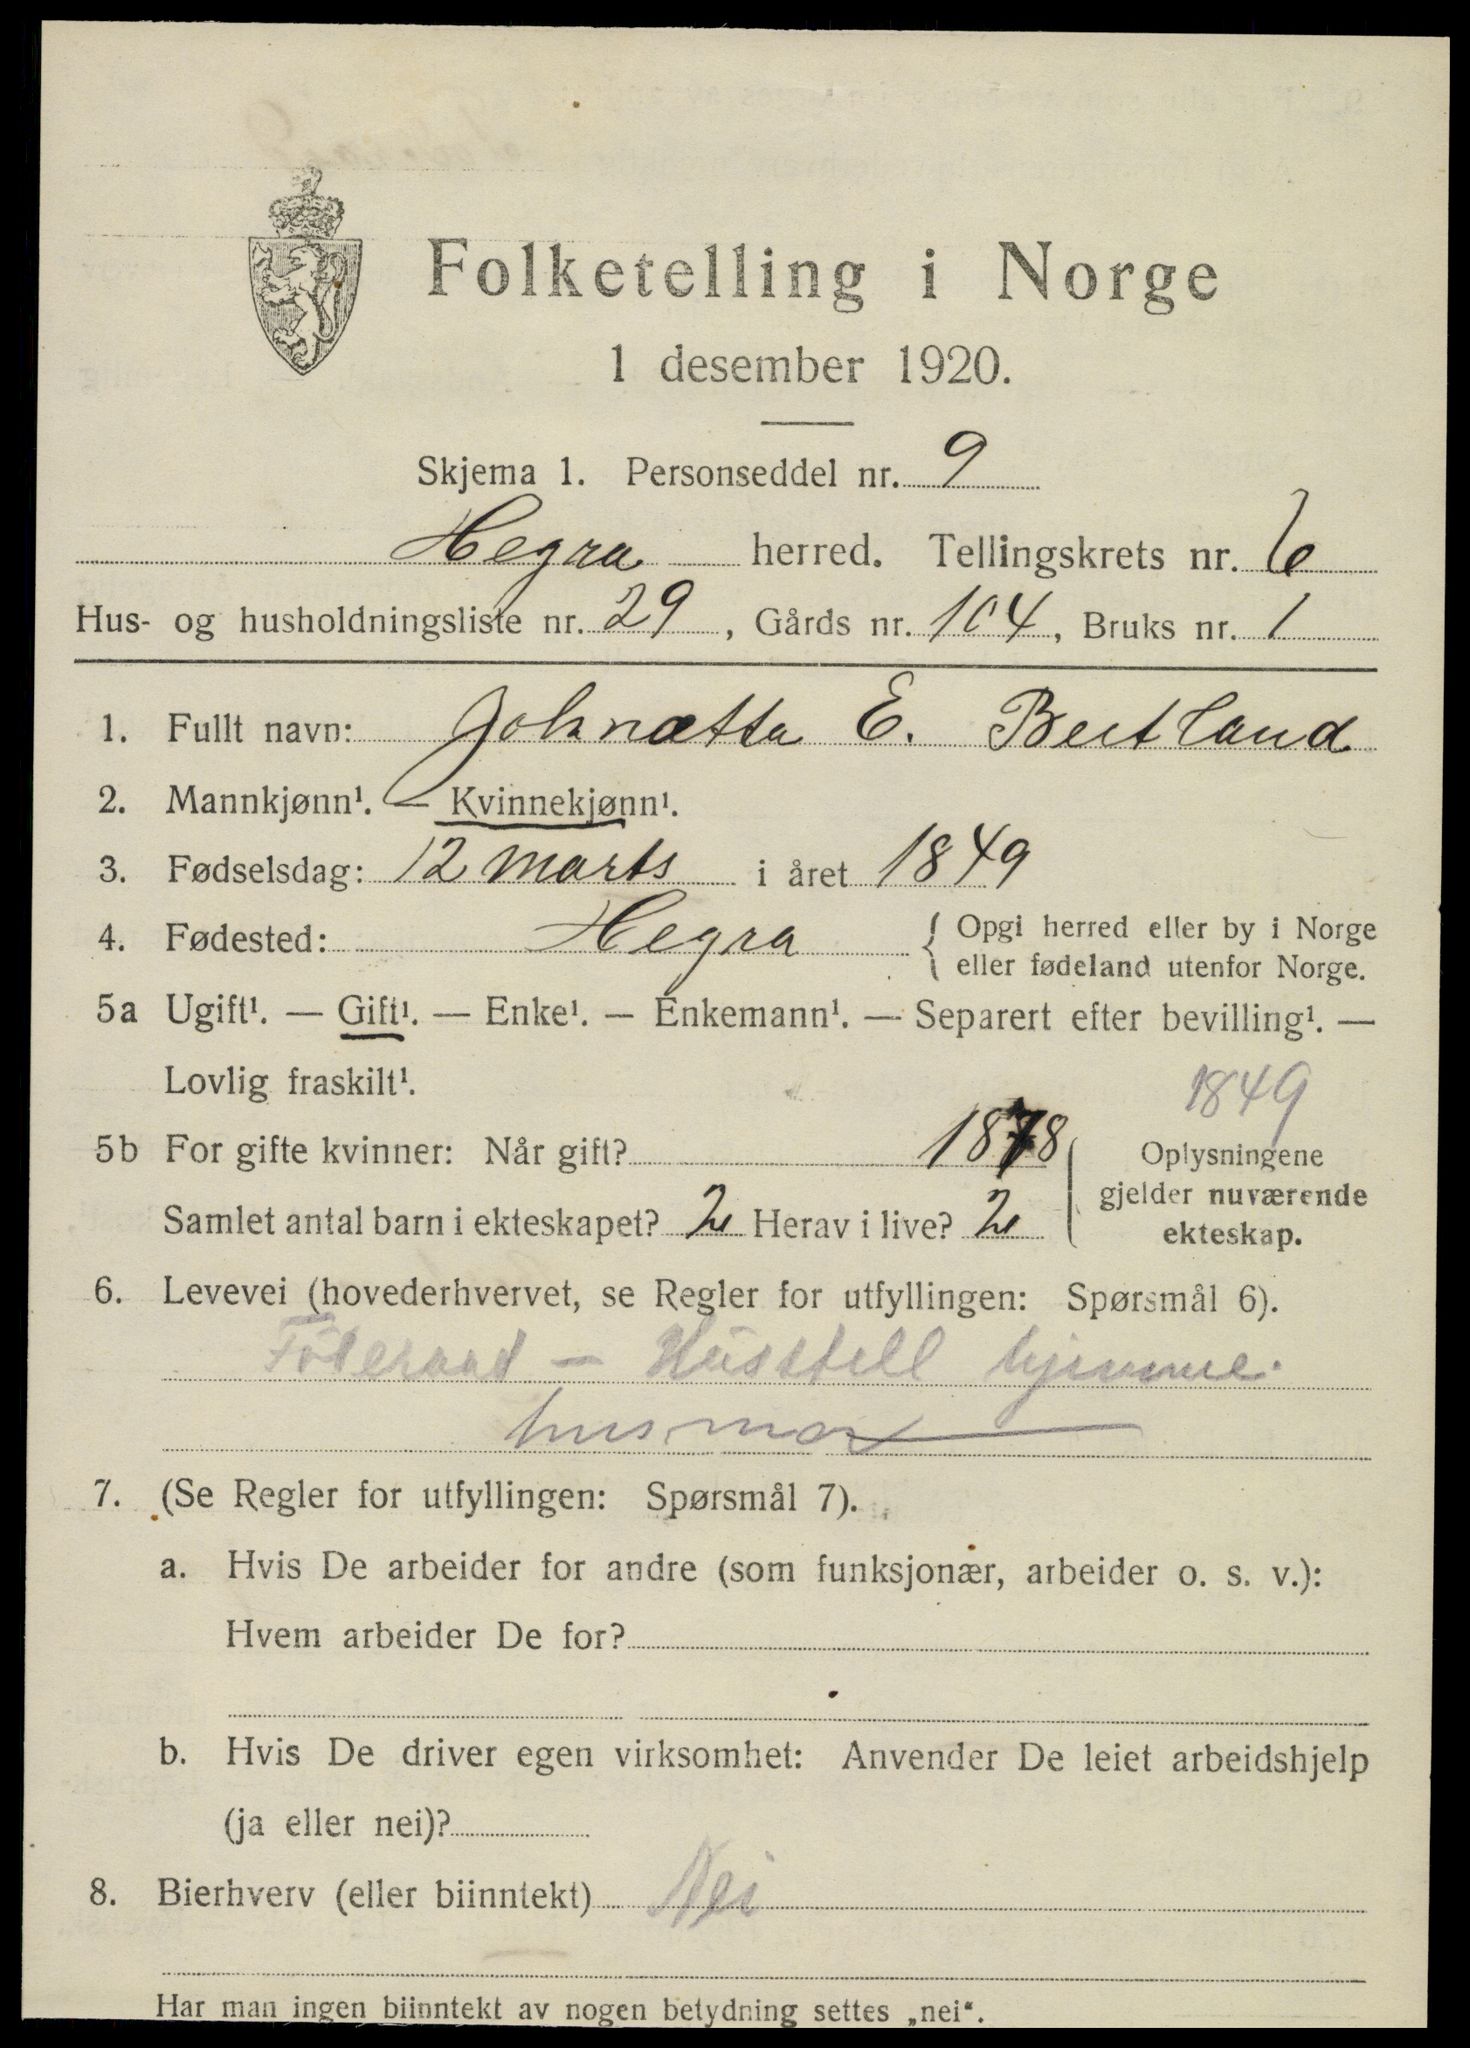 Folketelling i Norge
1 desember 1920.
Skjema 1. Personseddel nr. 9
Hegra herred. Tellingskrets nr. 6
Hus- og husholdningsliste nr. 29, Gårds nr. 104, Bruks nr. 1
1. Fullt navn: Johnætta E. Bertland
2. Mannkjønn¹. — Kvinnekjønn¹.
3. Fødselsdag: 12 marts i året 1849
4. Fødested: Hegra { Opgi herred eller by i Norge
eller fødeland utenfor Norge.
5a Ugift¹. — Gift¹. — Enke¹. — Enkemann¹. — Separert efter bevilling¹. —
Lovlig fraskilt¹.
1849
5b For gifte kvinner: Når gift? 1878
Samlet antal barn i ekteskapet? 2 Herav i live? 2
Oplysningene
gjelder nuværende
ekteskap.
6. Levevei (hovederhvervet, se Regler for utfyllingen: Spørsmål 6).
Föderaad — Husstell hjemme
husmor
7. (Se Regler for utfyllingen: Spørsmål 7).
a. Hvis De arbeider for andre (som funksjonær, arbeider o. s. v.):
Hvem arbeider De for?
b. Hvis De driver egen virksomhet: Anvender De leiet arbeidshjelp
(ja eller nei)?
8. Bierhverv (eller biinntekt) Nei
Har man ingen biinntekt av nogen betydning settes „nei“.